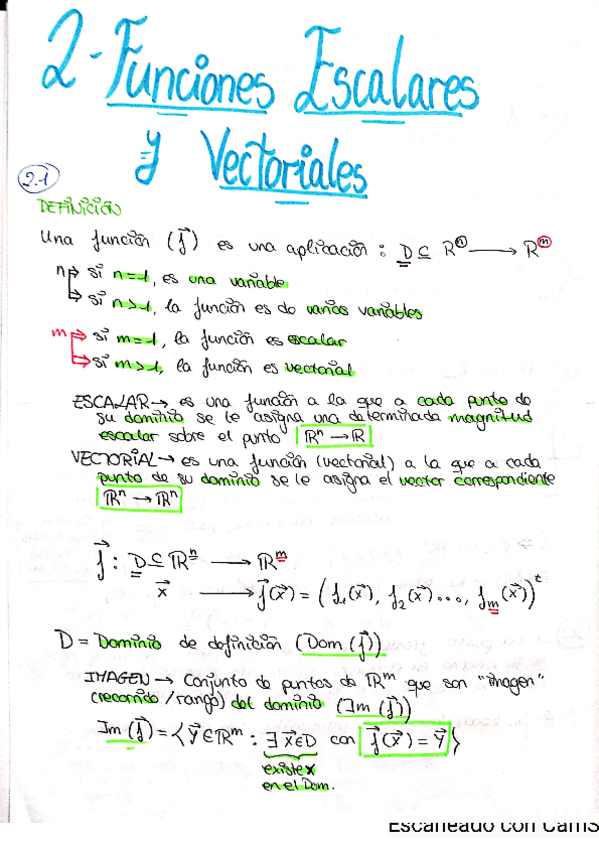 2- Funciones Escalares
y Vectoriales
2.1
DEFINICIÓN
Una función (f⃗) es una aplicación : D ⊆ ℝⁿ ⟶ ℝᵐ
n → si n=1, es una variable
↳ si n>1, la función es de varias variables
m → si m=1, la función es escalar
↳ si m>1, la función es vectorial
ESCALAR → es una función a la que a cada punto de
su dominio se le asigna una determinada magnitud
escalar sobre el punto ℝⁿ → ℝ
VECTORIAL → es una función (vectorial) a la que a cada
punto de su dominio se le asigna el vector correspondiente
ℝⁿ → ℝⁿ
f⃗ : D ⊆ ℝⁿ ⟶ ℝᵐ
x⃗ ⟶ f⃗(x⃗) = (f₁(x⃗), f₂(x⃗)..., fₘ(x⃗))ᵗ
D = Dominio de definición (Dom (f⃗))
IMAGEN → Conjunto de puntos de ℝᵐ que son "imagen"
(recorrido/rango) del dominio (Im (f⃗))
Im (f⃗) = {y⃗ ∈ ℝᵐ : ∃ x⃗ ∈ D con f⃗(x⃗) = y⃗}
existe x
en el Dom.
Escaneado con CamS